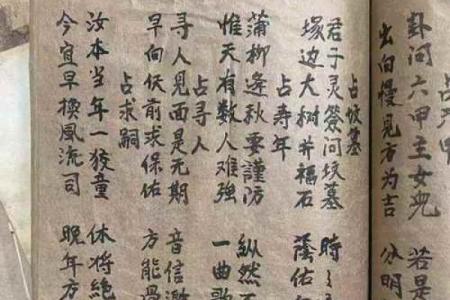 占六甲
卦问六甲主女儿
若是
出向慢见方为吉
分明
占坟墓
君子灵签问坟墓
時〻
塚边大树井福石
蔭佑
占寿年
蒲柳逢秋要謹防
纵然不
惟天有数人难強
一曲歌
占寻人
寻人见面是无期
音信
早向佚前求保佑
方能過
占求嗣
汝本当年一狡童
休将絶
今宜早换風流司
晚年方